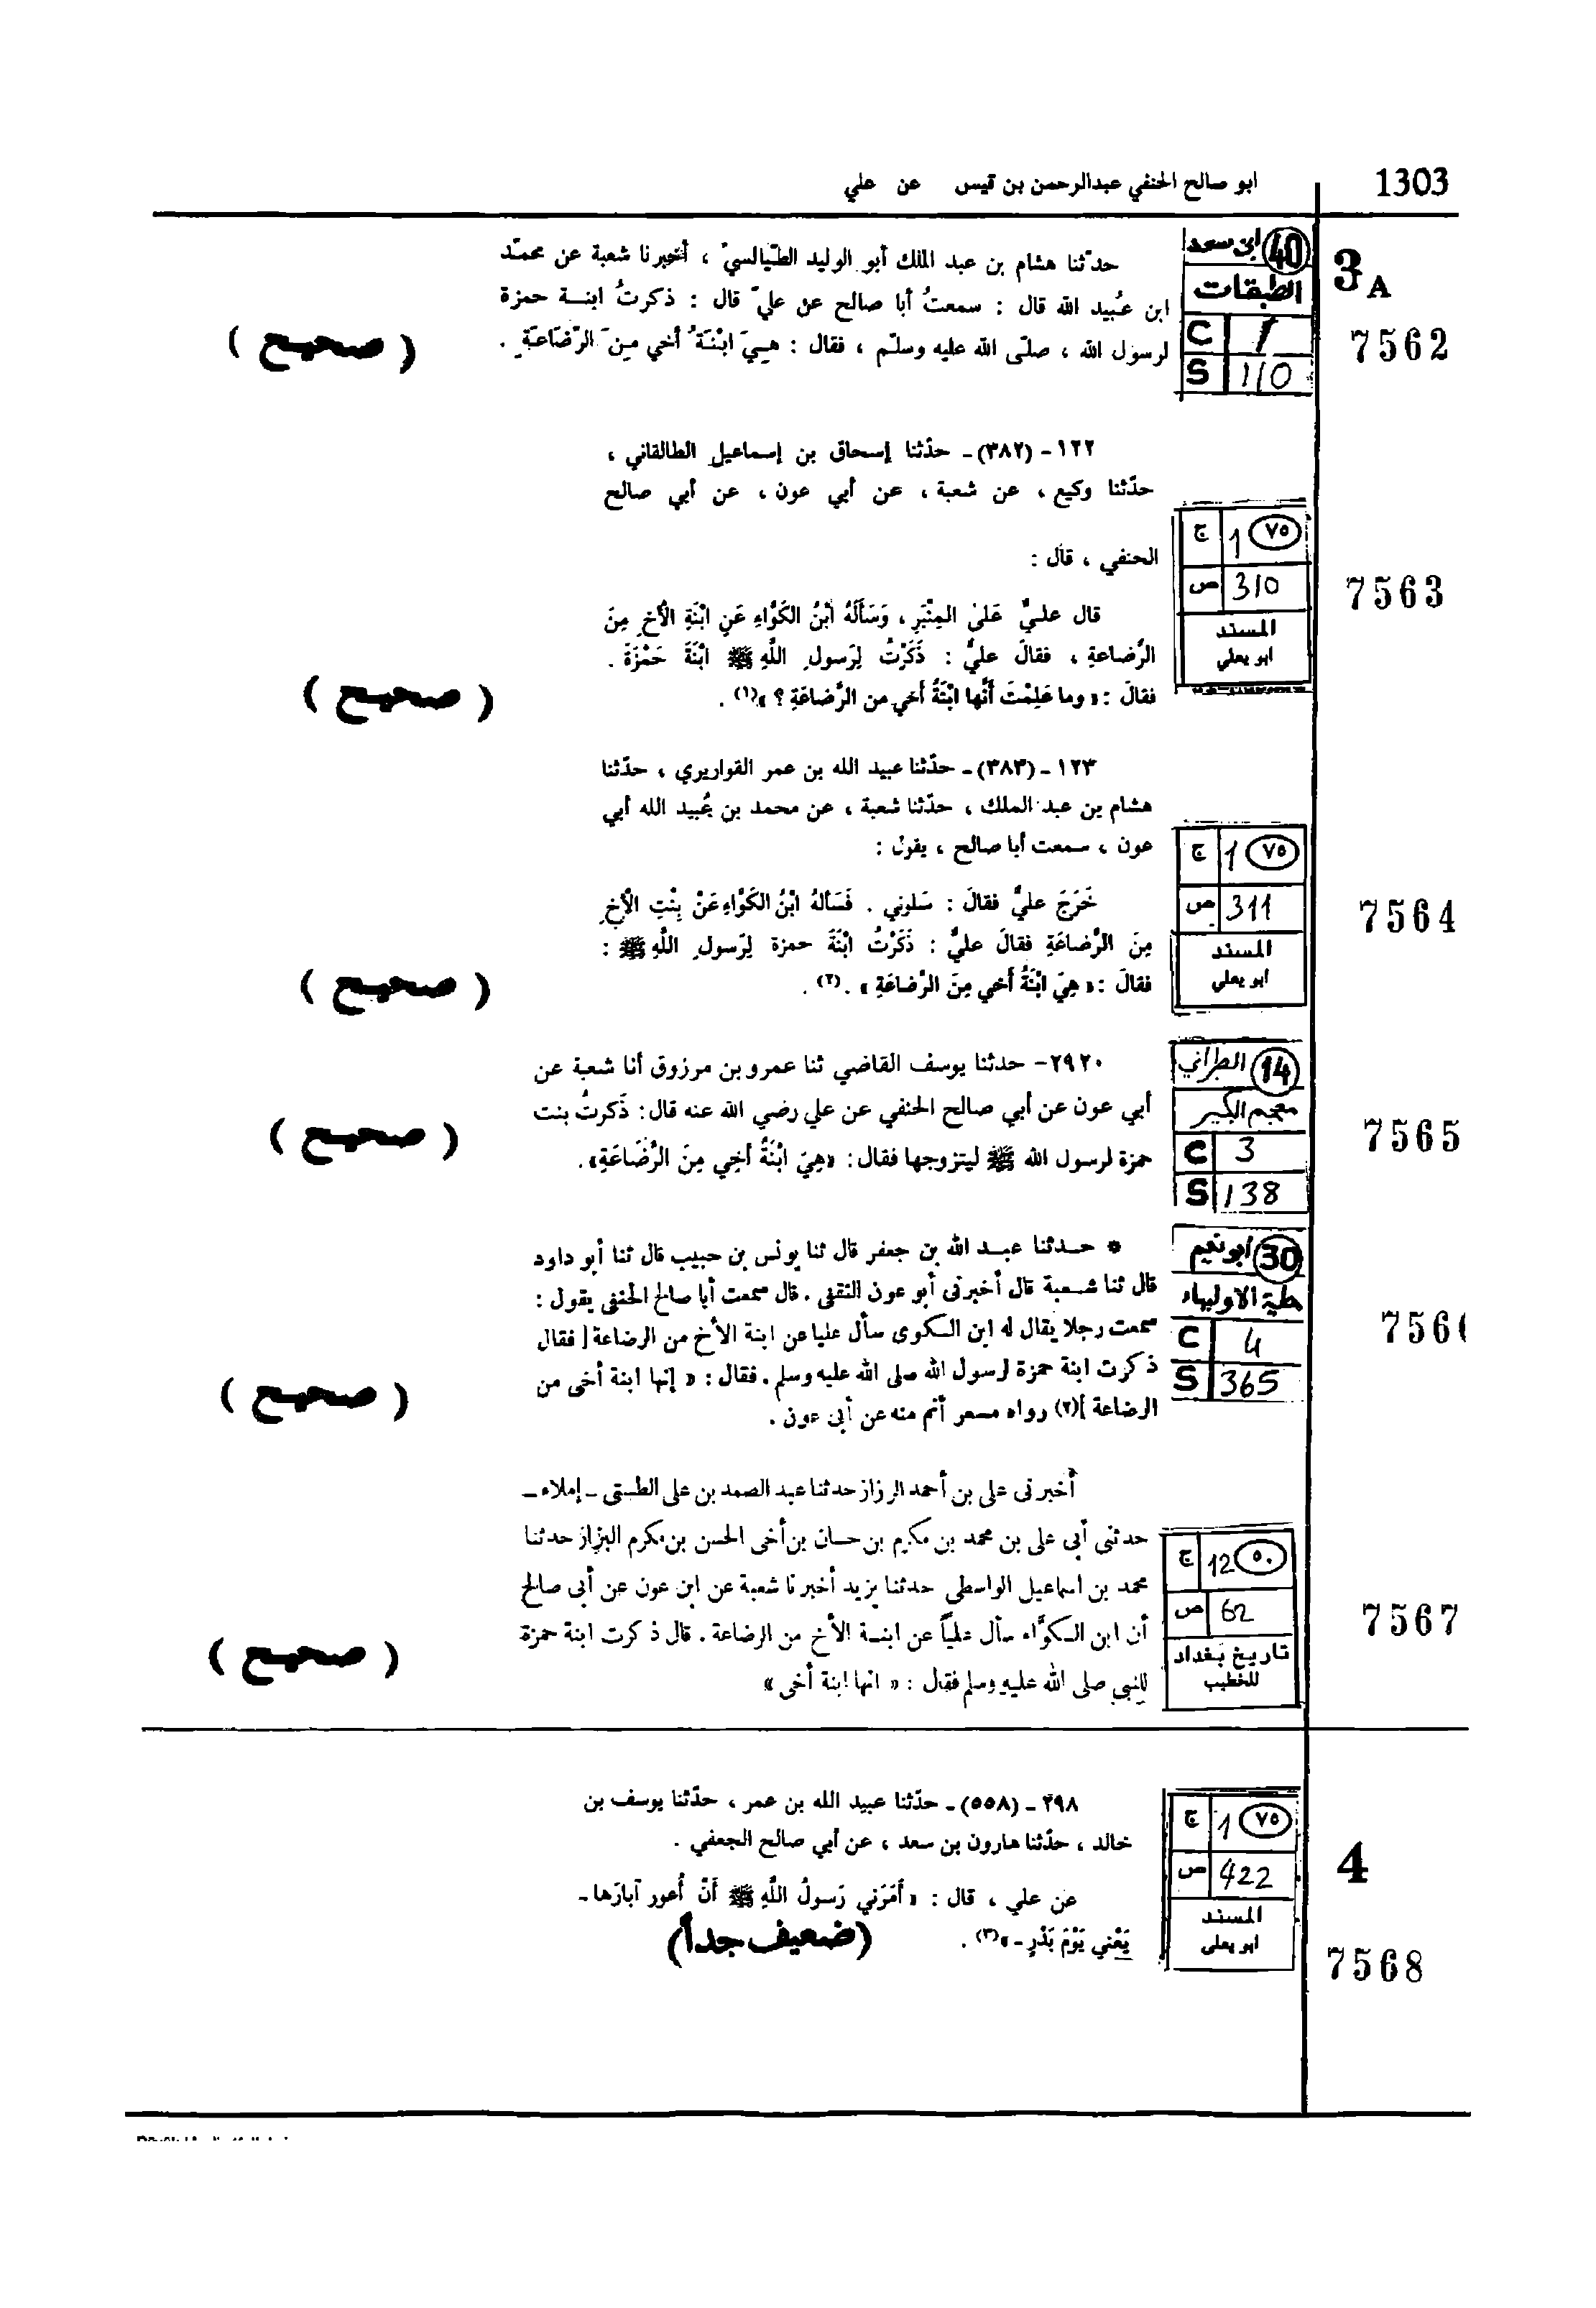 1303
ابو صالح الحنفي عبدالرحمن بن قيس عن علي
3 A
7562
40 ابن سعد
الطبقات
C 1
S 110
حدّثنا هشام بن عبد الملك أبو الوليد الطيالسيّ ، أخبرنا شعبة عن محمّد
ابن عُبيد الله قال : سمعتُ أبا صالح عن عليّ قال : ذكرتُ ابنة حمزة
لرسول الله ، صلّى الله عليه وسلّم ، فقال : هِيَ ابْنَةُ أخي مِنَ الرّضَاعَةِ .
( صحيح )
١٢٢ - (٣٨٢) - حدّثنا إسحاق بن إسماعيل الطالقاني ،
حدّثنا وكيع ، عن شعبة ، عن أبي عون ، عن أبي صالح
الحنفي ، قال :
7563
ج 1 ٧٥
ص 310
المسند
ابو يعلي
قال عليٌّ عَلىٰ المِنْبَرِ ، وَسَأَلَهُ ابْنُ الكَوَّاءِ عَنِ ابْنَةِ الأَخِ مِنَ
الرَّضاعةِ ، فقالَ عليٌّ : ذَكَرْتُ لِرَسولِ اللَّهِ ﷺ ابْنَةَ حَمْزَةَ .
فقالَ : « وما عَلِمْتَ أَنَّها ابْنَةُ أَخي من الرَّضاعَةِ ؟ »(١) .
( صحيح )
١٢٣ - (٣٨٣) - حدّثنا عبيد الله بن عمر القواريري ، حدّثنا
هشام بن عبد الملك ، حدّثنا شعبة ، عن محمد بن عُبيد الله أبي
عون ، سمعت أبا صالح ، يقول :
7564
ج 1 ٧٥
ص 311
المسند
ابو يعلي
خَرَجَ عليٌّ فقالَ : سَلوني . فَسَألهُ ابْنُ الكَوَّاءِ عَنْ بِنْتِ الأَخِ
مِنَ الرَّضاعَةِ فقالَ عليٌّ : ذَكَرْتُ ابْنَةَ حمزة لِرَسولِ اللَّهِ ﷺ :
فقالَ : « هِيَ ابْنَةُ أَخي مِنَ الرَّضاعَةِ » .(٢) .
( صحيح )
7565
14 الطبراني
معجم الكبير
C 3
S 138
٢٩٢٠- حدثنا يوسف القاضي ثنا عمرو بن مرزوق أنا شعبة عن
أبي عون عن أبي صالح الحنفي عن علي رضي الله عنه قال: ذَكرتُ بنت
حمزة لرسول الله ﷺ ليتزوجها فقال: «هِيَ ابْنَةُ أخِي مِنَ الرَّضَاعَةِ».
( صحيح )
30 أبو نعيم
حلية الاولياء
C 4
S 365
* حدثنا عبد الله بن جعفر قال ثنا يونس بن حبيب قال ثنا أبو داود
قال ثنا شعبة قال أخبرنى أبو عون الثقفى . قال سمعت أبا صالح الحنفى يقول :
سمعت رجلا يقال له ابن الكوى سأل عليا عن ابنة الأخ من الرضاعة [ فقال
ذكرت ابنة حمزة لرسول الله صلى الله عليه وسلم . فقال : « إنها ابنة أخى من
الرضاعة ](٢) رواه مسعر أتم منه عن أبى عون .
( صحيح )
أخبرنى على بن أحمد الرزاز حدثنا عبد الصمد بن على الطستى - إملاء -
حدثنى أبى على بن محمد بن مكرم بن حسان بن أخى الحسن بن مكرم البزاز حدثنا
محمد بن اسماعيل الواسطى حدثنا يزيد أخبرنا شعبة عن ابن عون عن أبى صالح
أن ابن الكوَّاء سأل علياً عن ابنة الأخ من الرضاعة . قال ذكرت ابنة حمزة
للنبى صلى الله عليه وسلم فقال : « انها ابنة أخى »
7567
ج 12 ٥٠
ص 62
تاريخ بغداد
للخطيب
( صحيح )
4
7568
ج 1 ٧٥
ص 422
المسند
ابو يعلى
٢٩٨ - (٥٥٨) - حدّثنا عبيد الله بن عمر ، حدّثنا يوسف بن
خالد ، حدّثنا هارون بن سعد ، عن أبي صالح الجعفي .
عن علي ، قال : « أَمَرَني رَسولُ اللَّهِ ﷺ أَنْ أُعور آبارَها -
يَعْني يَوْمَ بَدْرٍ - »(٣) .
(ضعيف جداً)